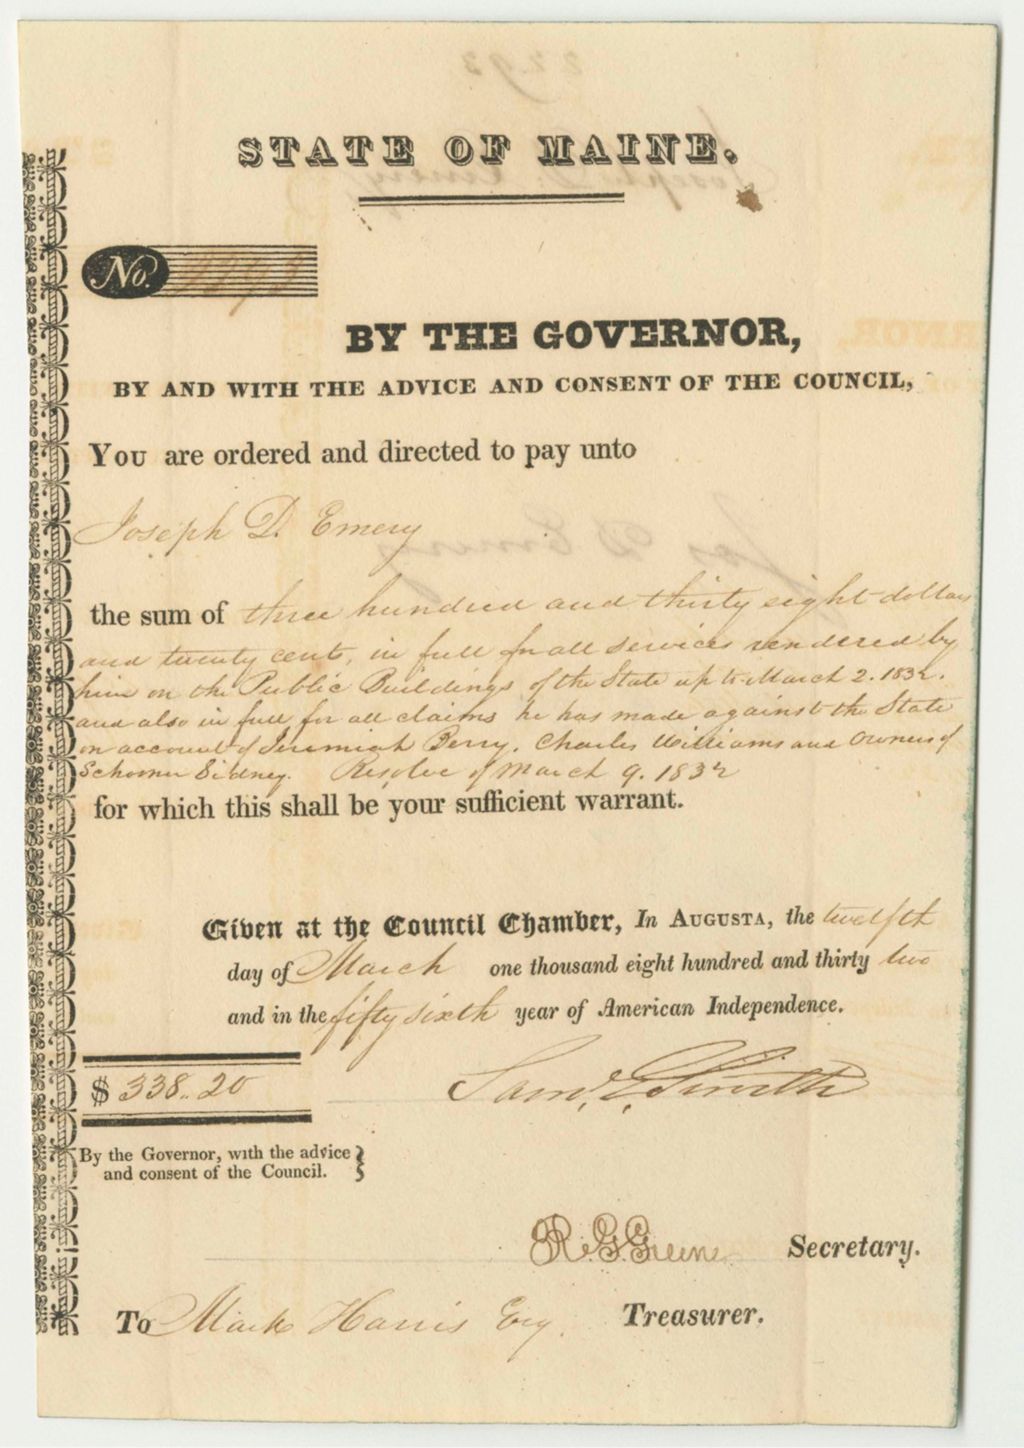 STATE OF MAINE.
No.
BY THE GOVERNOR,
BY AND WITH THE ADVICE AND CONSENT OF THE COUNCIL,
You are ordered and directed to pay unto
Joseph D. Emery
the sum of three hundred and thirty eight dollars
and twenty cents, in full for all services rendered by
him on the Public Buildings of the State up to March 2. 1832.
and also in full for all claims he has made against the State
on account of Jeremiah Berry, Charles Williams and Owners of
Schooner Sidney. Resolve of March 9. 1832
for which this shall be your sufficient warrant.
Given at the Council Chamber, In Augusta, the twelfth
day of March one thousand eight hundred and thirty two
and in the fifty sixth year of American Independence.
$ 338.. 20
Saml. E. Smith
By the Governor, with the advice
and consent of the Council.
R. G. Greene Secretary.
To Mark Harris Esq. Treasurer.